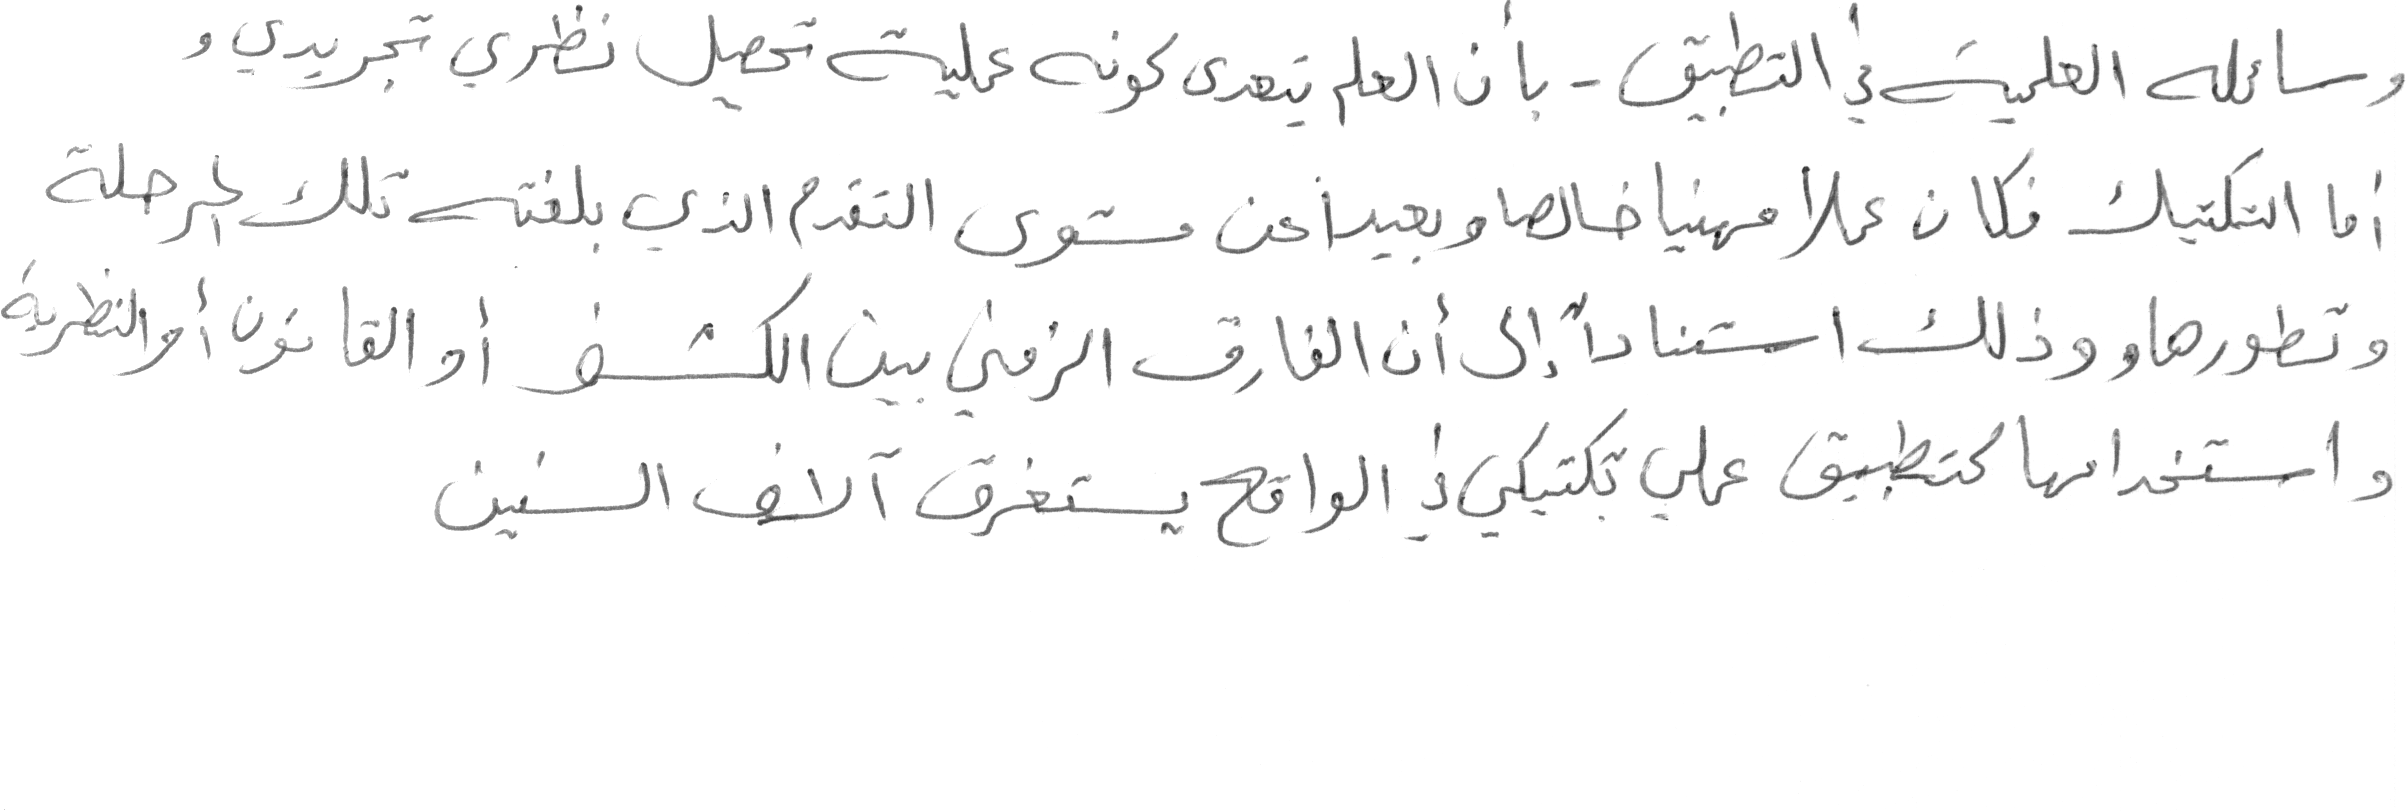 وسائله العلمية في التطبيق - بأن العلم يتعدى كونه عملية تحصيل نظري تجريدي و
أما التكتيك فكان عملا مهنيا خالصا وبعيدا عن مستوى التقدم الذي بلغته تلك المرحلة
وتطورها، وذلك استناداً إلى أن الفارق الزمني بين الكشف أو القانون أو النظرية
واستخدامها كتطبيق عملي تكتيكي في الواقع يستغرق آلاف السنين